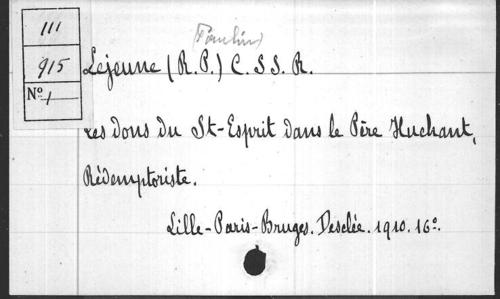 III
915
N° 1
(Paulin)
Lejeune (R.P.) C.SS.R.
Les dons du St-Esprit dans le Père Huchant,
Rédemptoriste.
Lille-Paris-Bruges. Desclée. 1910. 16°.